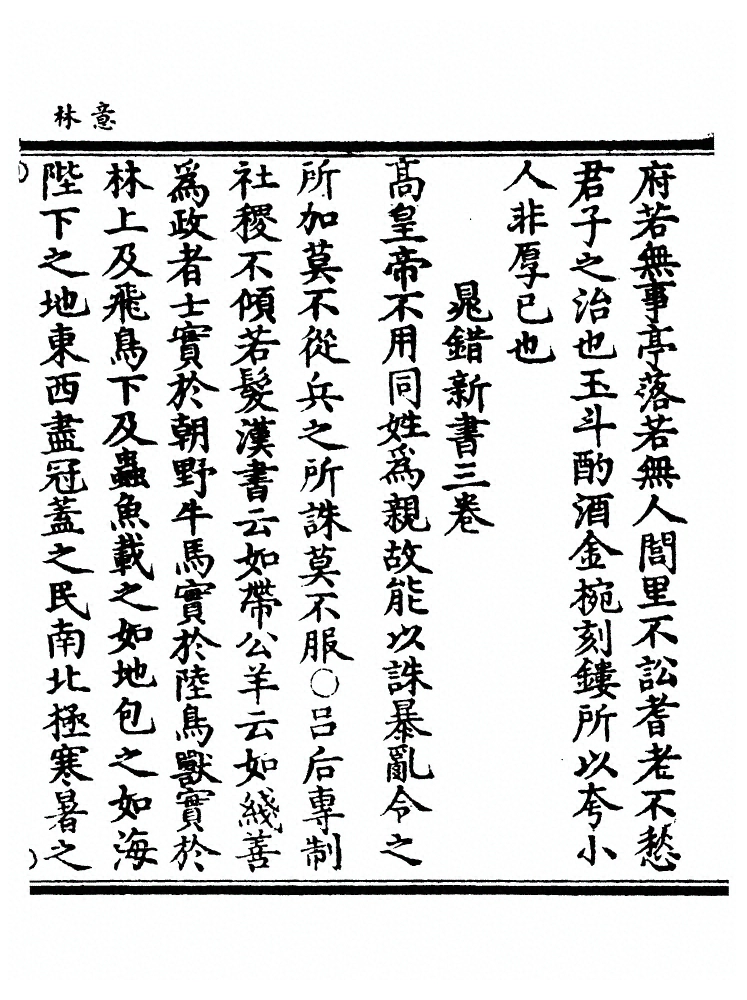 意林
府若無事亭落若無人閭里不訟耆老不愁
君子之治也玉斗酌酒金椀刻鏤所以夸小
人非厚已也
晁錯新書三卷
高皇帝不用同姓為親故能以誅暴亂令之
所加莫不從兵之所誅莫不服○呂后專制
社稷不傾若髮漢書云如帶公羊云如綫善
為政者士實於朝野牛馬實於陸鳥獸實於
林上及飛鳥下及蟲魚載之如地包之如海
陛下之地東西盡冠蓋之民南北極寒暑之